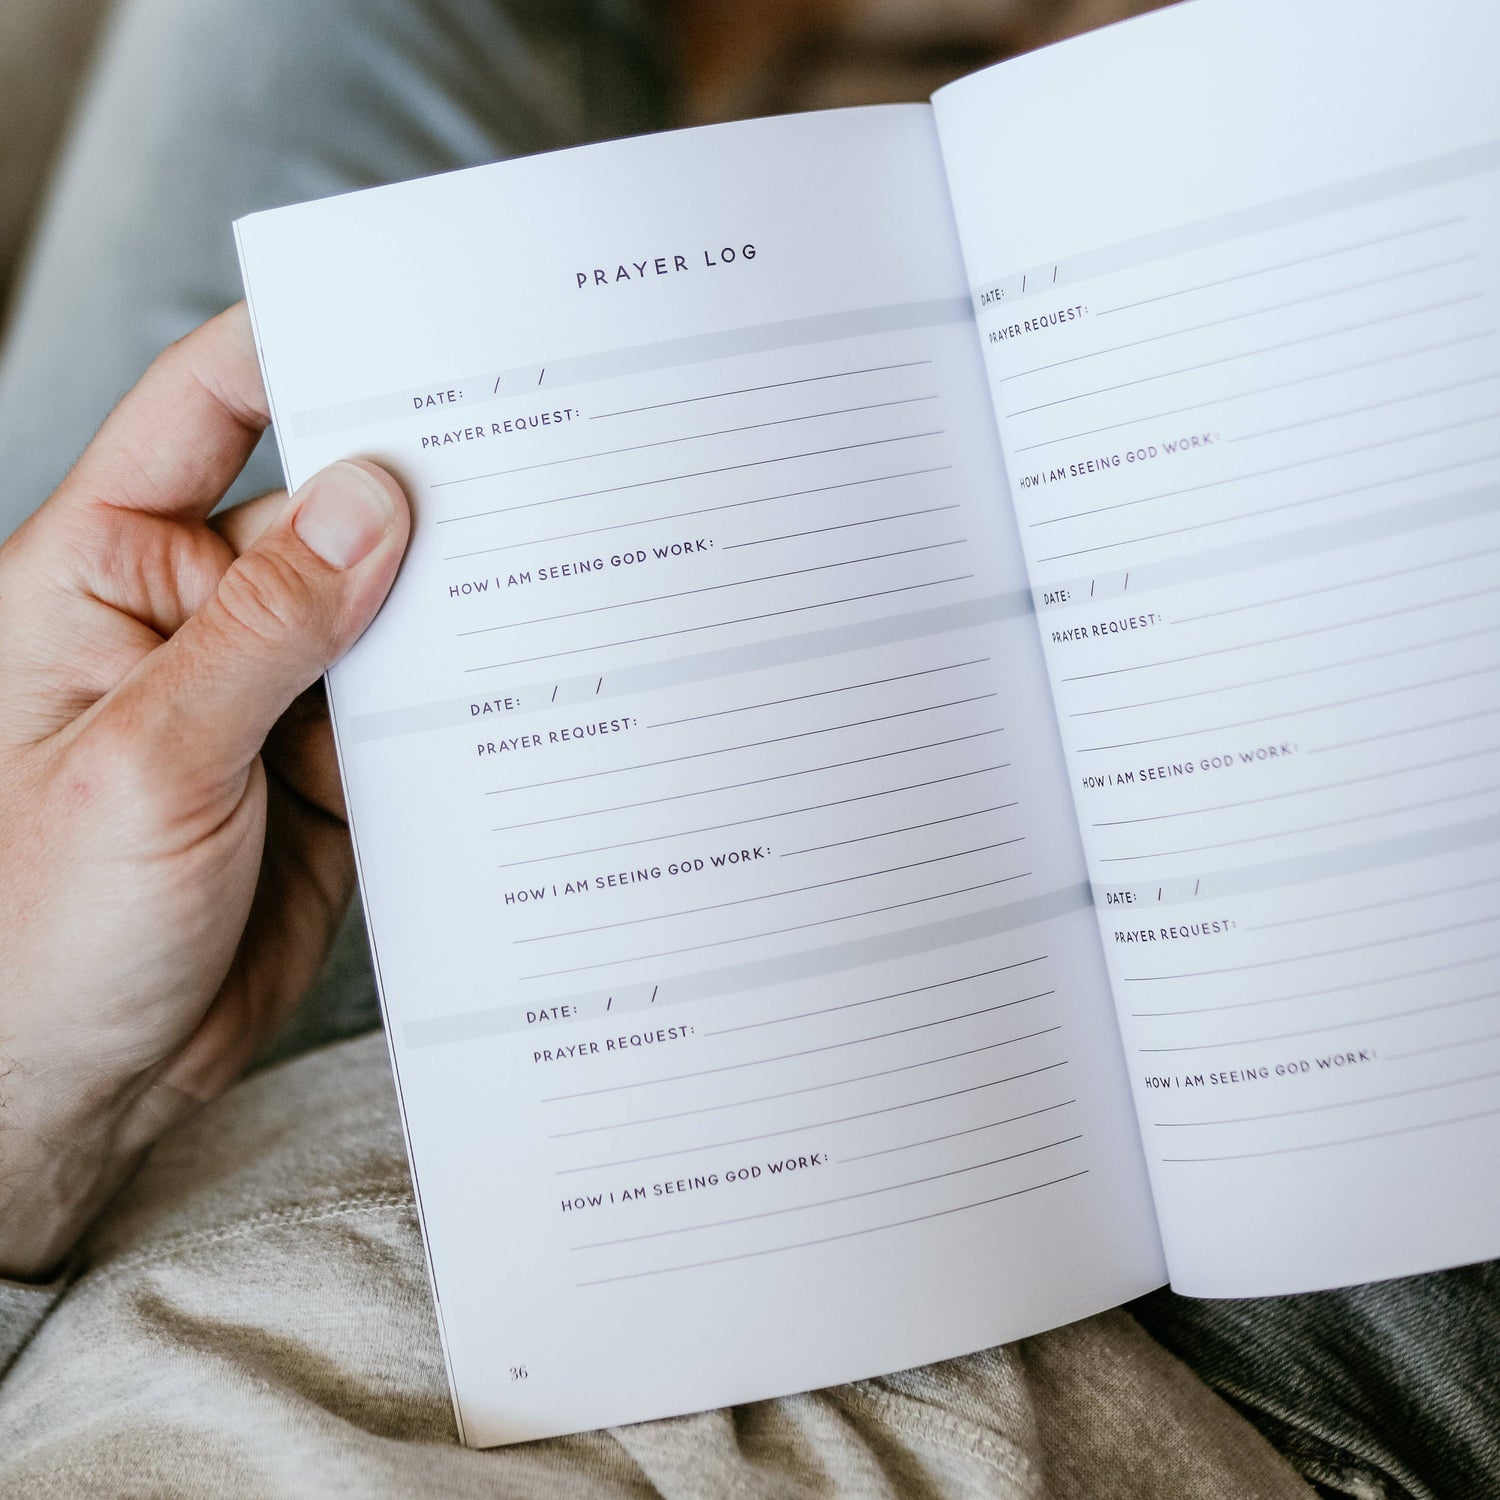 PRAYER LOG
DATE: / /
PRAYER REQUEST:
HOW I AM SEEING GOD WORK:
DATE: / /
PRAYER REQUEST:
HOW I AM SEEING GOD WORK:
DATE: / /
PRAYER REQUEST:
HOW I AM SEEING GOD WORK:
36
DATE: / /
PRAYER REQUEST:
HOW I AM SEEING GOD WORK:
DATE: / /
PRAYER REQUEST:
HOW I AM SEEING GOD WORK:
DATE: / /
PRAYER REQUEST:
HOW I AM SEEING GOD WORK: